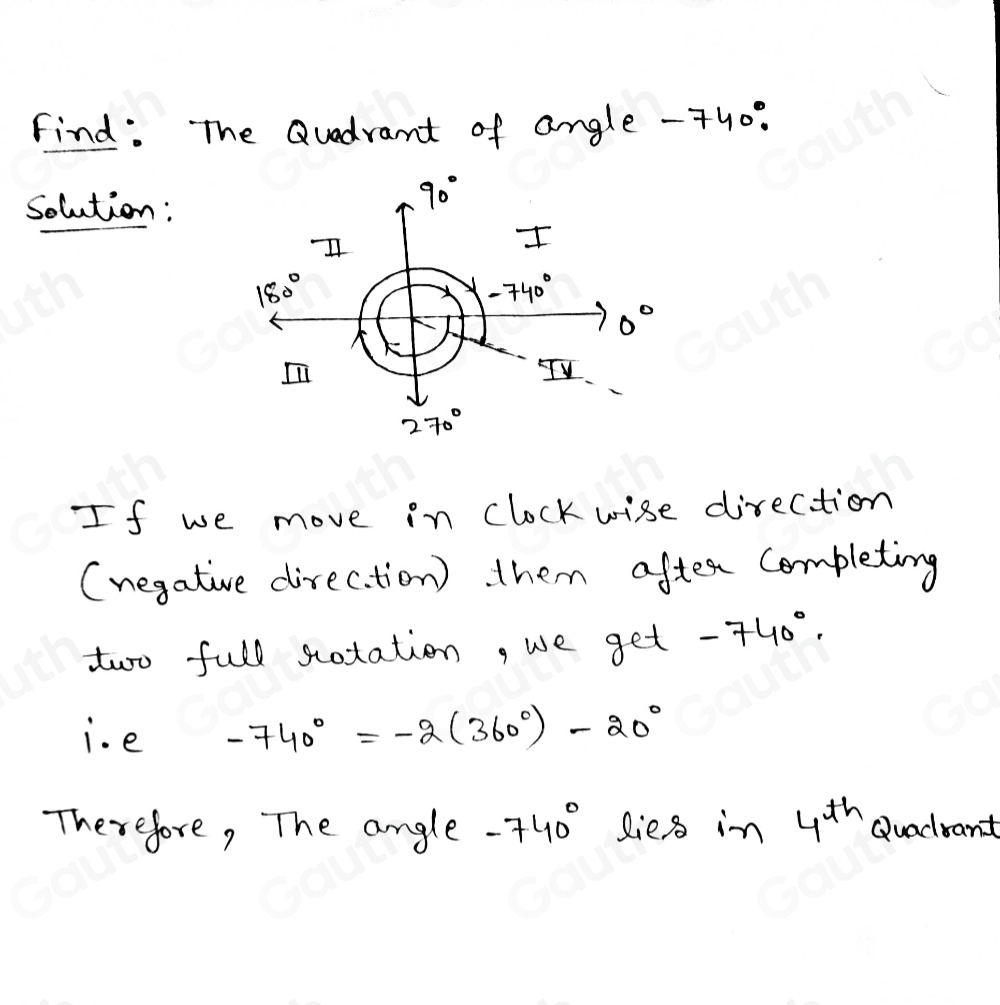 Find: The Quadrant of angle -740°.
Solution:
90°
II I
180° -740° 0°
III IV
270°
If we move in clockwise direction
(negative direction) then after completing
two full rotation, we get -740°.
i.e -740° = -2(360°) - 20°
Therefore, The angle -740° lies in 4th Quadrant